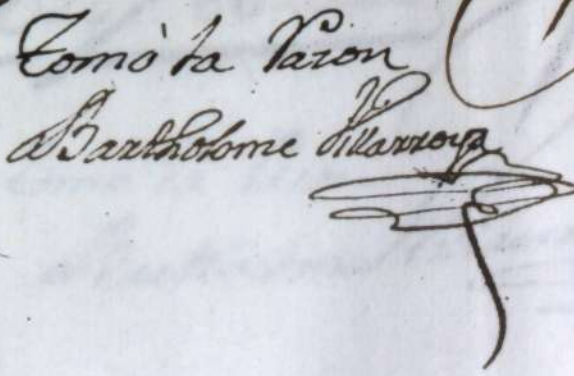 Tomò la Razon
Bartholome Villarroya